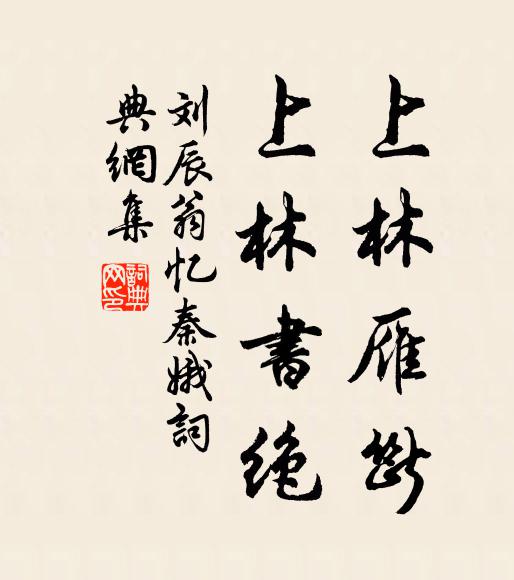 上林雁断
上林書绝
刘辰翁忆秦娥詞
典網集
詞典
网印